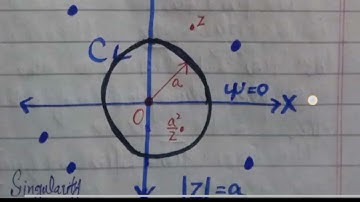 z
C
a
ψ=0
X
O
a²/z
Singularity
|z|=a